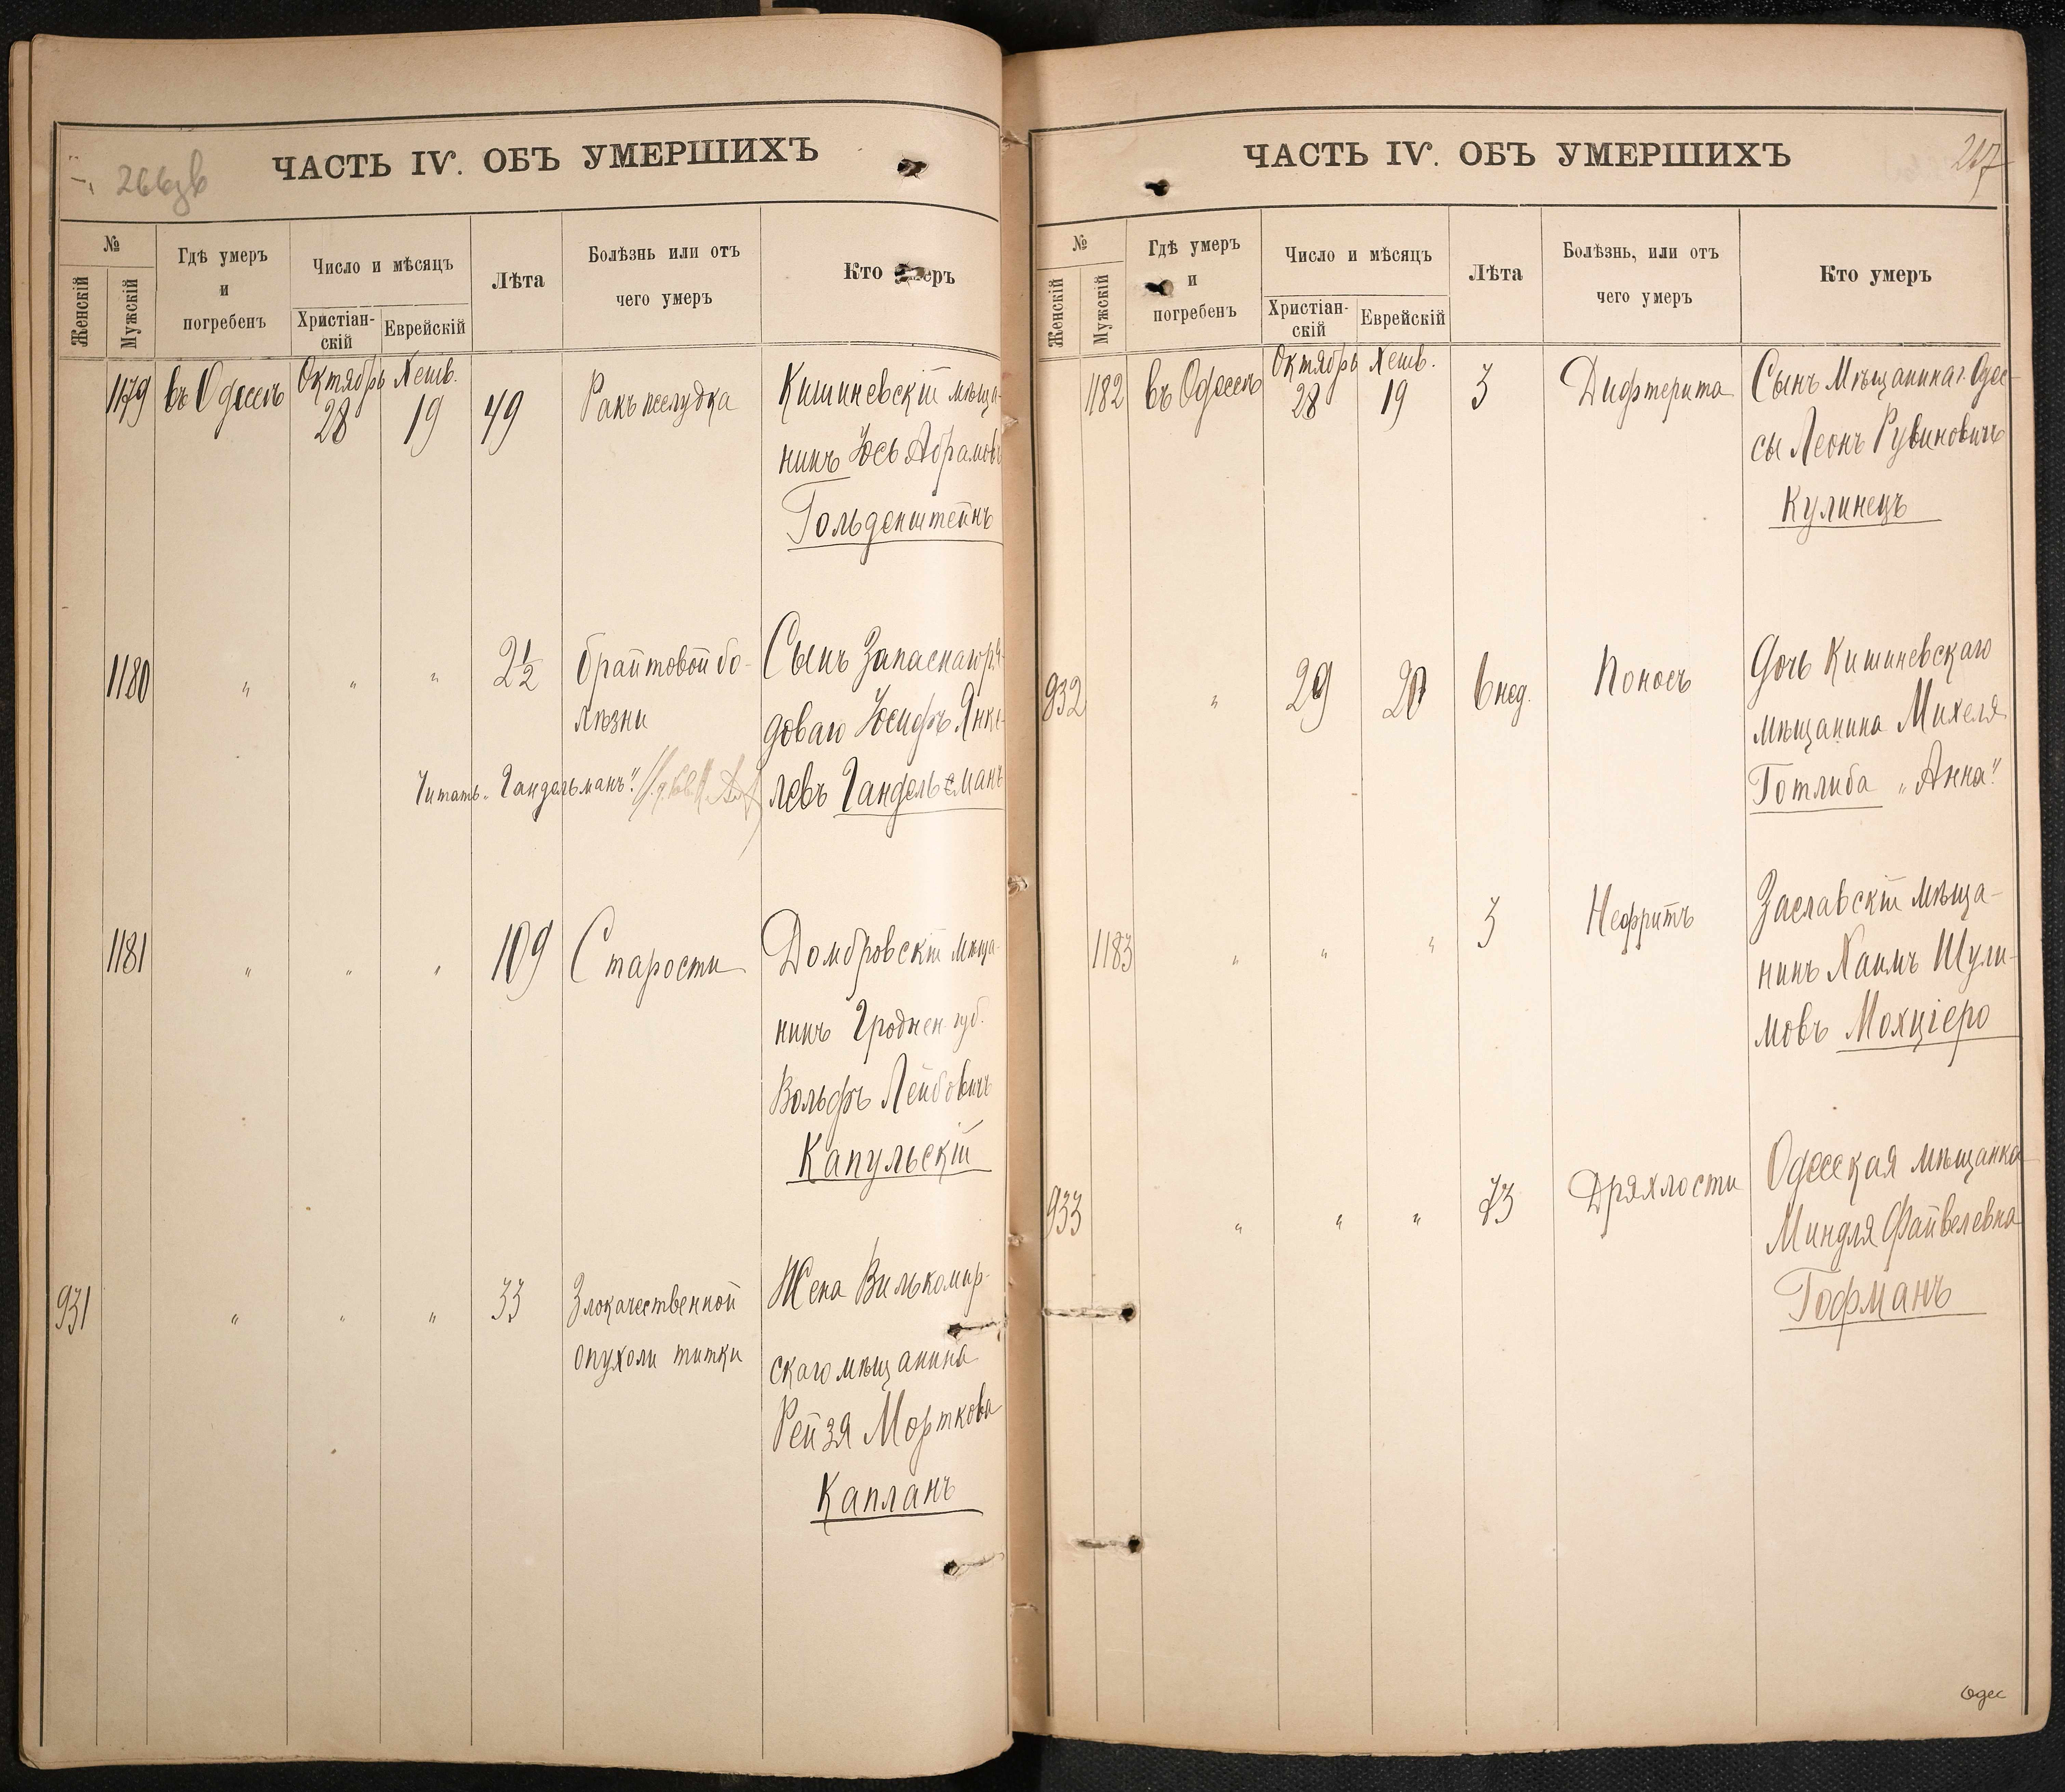 266зв
ЧАСТЬ IV. ОБЪ УМЕРШИХЪ
№
Женскій
Мужскій
Гдѣ умеръ
и
погребенъ
Число и мѣсяцъ
Христіан-
скій
Еврейскій
Лѣта
Болѣзнь или отъ
чего умеръ
Кто умеръ
1179
въ Одессѣ
Октябрь
28
Хешв.
19
49
Ракъ желудка
Кишиневскій мѣща-
нинъ Іось Абрамовъ
Гольденштейнъ
1180
„
„
„
2½
брайтовой бо-
лѣзни
Сынъ Запаснаго ря-
доваго Іосифъ Янке-
левъ Гандельсманъ
Читать „Гандельманъ“
1181
„
„
„
109
Старости
Домбровскій мѣща-
нинъ Гроднен. губ.
Вольфъ Лейбовичъ
Капульскій
931
„
„
„
33
Злокачественной
опухоли титки
Жена Вилькомир-
скаго мѣщанина
Рейзя Морткова
Капланъ
267
ЧАСТЬ IV. ОБЪ УМЕРШИХЪ
№
Женскій
Мужскій
Гдѣ умеръ
и
погребенъ
Число и мѣсяцъ
Христіан-
скій
Еврейскій
Лѣта
Болѣзнь, или отъ
чего умеръ
Кто умеръ
1182
въ Одессѣ
Октябрь
28
Хешв.
19
3
Дифтерита
Сынъ Мѣщанина г. Одес-
сы Леонъ Рувиновичъ
Кулинецъ
932
„
29
20
6 нед.
Поносъ
Дочь Кишиневскаго
мѣщанина Михеля
Готлиба „Анна“
1183
„
„
„
3
Нефритъ
Заславскій мѣща-
нинъ Хаимъ Шули-
мовъ Мохціеро
933
„
„
„
73
Дряхлости
Одесская мѣщанка
Миндля Файвелевна
Гофманъ
Одес